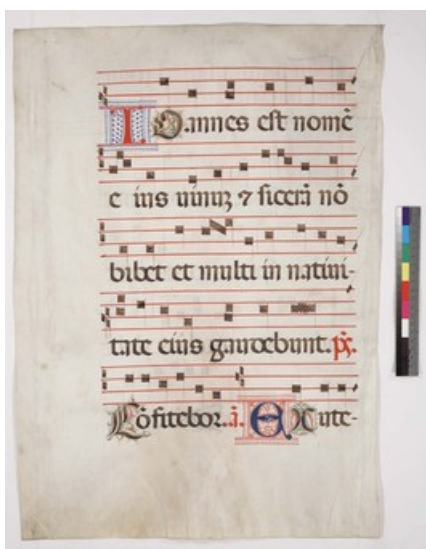 IO.annes est nomē
e ius uinuʒ ⁊ sicerā nō
bibet et multi in natiui-
tate eius gaudebunt. p̄s.
Cōfitebor. i. EX ute-